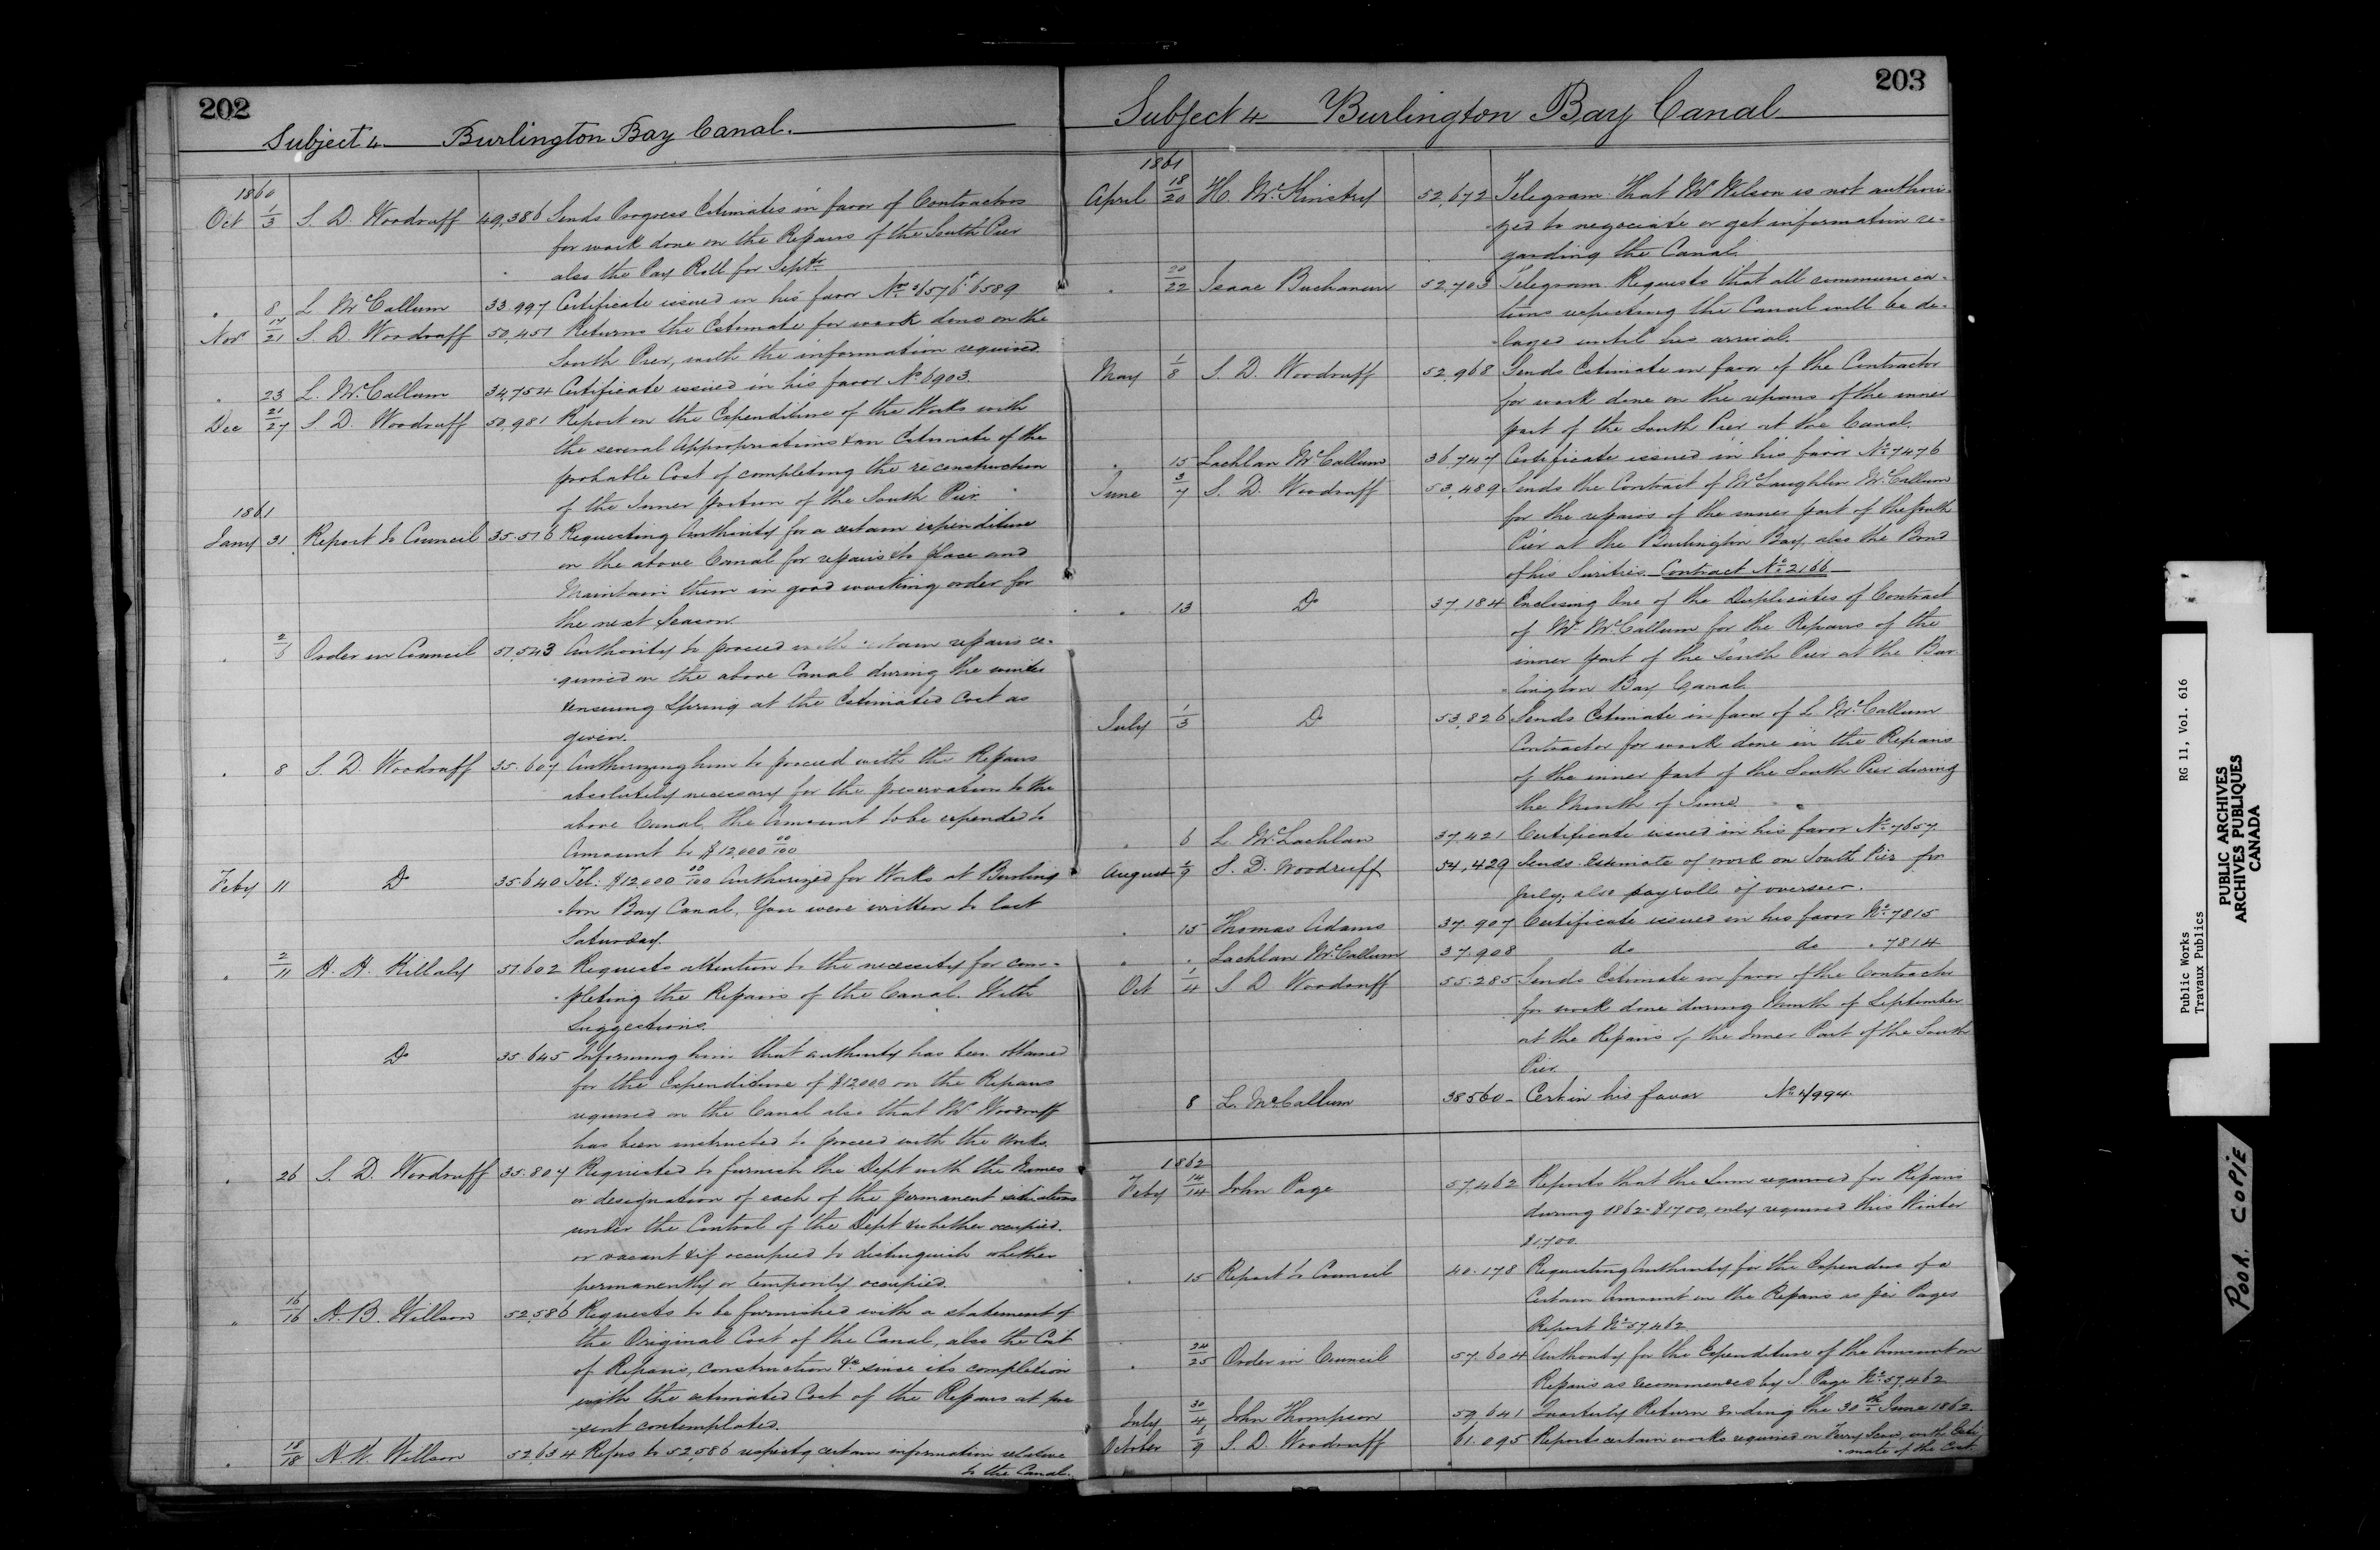 202
Subject 4 Burlington Bay Canal.
1860
Oct 1/3 S. D. Woodruff 49,386 Sends Progress Estimates in favor of Contractors
for work done on the Repairs of the South Pier
also the Pay Roll for Septr
" 8 L McCallum 33.997 Certificate issued in his favor Nos 6576 6589
Nov 17/21 S. D. Woodruff 50,451 Returns the Estimate for work done on the
South Pier, with the information required.
" 23 L. McCallum 34,754 Certificate issued in his favor No 6903.
Dec 21/27 S. D. Woodruff 50,981 Report on the Expenditure of the Works with
the several Appropriations & an Estimate of the
probable Cost of completing the reconstruction
of the Inner portion of the South Pier
1861
Jany 31 Report to Council 35.516 Requesting Authority for a certain expenditure
on the above Canal for repairs & to place and
Maintain them in good working order for
the next Season.
" Order in Council 51,543 Authority to proceed with certain repairs re-
-quired on the above Canal during the winter
& ensuing Spring at the Estimated Cost as
given.
" 8 S. D. Woodruff 35.607 Authorizing him to proceed with the Repairs
absolutely necessary for the preservation to the
above Canal, the Amount to be expended to
Amount to $12,000 00/100
Feby 11 Do 35.640 Tel: $12,000 00/100 Authorized for Works at Burling
-ton Bay Canal, You were written to last
Saturday.
" 2/11 H. H. Killaly 51.602 Requests attention to the necessity for com-
-pleting the Repairs of the Canal. With
Suggestions.
Do 35.645 Informing him that authority has been obtained
for the Expenditure of $12000 on the Repairs
required on the Canal also that Mr Woodruff
has been instructed to proceed with the works.
" 26 S. D. Woodruff 35.807 Requested to furnish the Dept with the Names
or designation of each of the permanent situations
under the Control of the Dept & whether occupied.
or vacant & if occupied to distinguish whether
permanently or temporily occupied.
" 16/16 H. B. Willson 52,586 Requests to be furnished with a statement of
the Original Cost of the Canal, also the Cost
of Repairs, construction &c since its completion
with the estimated Cost of the Repairs at pre
-sent contemplated.
" 18/18 H. B. Willson 52,634 Refers to 52,586 respectg certain information relative
to the Canal.
203
Subject 4 Burlington Bay Canal
1861
April 18/20 H. McKinstry 52,672 Telegram. That Mr Wilson is not authori-
-zed to negociate or get information re-
garding the Canal.
" 20/22 Isaac Buchanan 52,703 Telegram. Requests that all communica-
tions respecting the Canal will be de-
-layed until his arrival.
May 1/8 S. D. Woodruff 52,968 Sends Estimate in favor of the Contractor
for work done on the repairs of the inner
part of the South Pier at the Canal.
" 15 Lachlan McCallum 36,747 Certificate issued in his favor No 7476
June 3/7 S. D. Woodruff 53,489 Sends the Contract of McLaughlin McCallum
for the repairs of the inner part of the South
Pier at the Burlington Bay, also the Bond
of his Surities. Contract No 2166
" 13 Do 37.184 Enclosing One of the Duplicates of Contract
of Mr McCallum for the Repairs of the
inner part of the South Pier at the Bur
-lington Bay Canal.
July 1/3 Do 53,826 Sends Estimate in favor of L McCallum
Contractor for work done in the Repairs
of the inner part of the South Pier during
the Month of June.
" 6 L McLachlan 37,421 Certificate issued in his favor No 7657.
August S. D. Woodruff 54,429 Sends Estimate of work on South Pier for
July; also payroll of overseer.
" 15 Thomas Adams 37.907 Certificate issued in his favor No 7815
" " Lachlan McCallum 37.908 do do " 7814
Oct 1/4 S D Woodruff 55.285 Sends Estimate in favor of the Contractor
for work done during Month of September
at the Repairs of the Inner Part of the South
Pier.
8 L. McCallum 38560 Cert in his favor No 7994.
1862
Feby 14/14 John Page 57,462 Reports that the Sum required for Repairs
during 1862 $1700, only required this Winter
$1,700.
" 15 Report to Council 40.178 Requesting Authority for the Expenditure of a
Certain Amount on the Repairs as per Pages
Report No 57,462.
" 24/25 Order in Council 57.604 Authority for the Expenditure of the Amount on
Repairs as recommended by J. Page No 57,462
July 30/4 John Thompson 59,641 Quarterly Return Ending the 30th June 1862.
October 6/9 S. D. Woodruff 61.095 Reports certain works required on Ferry Scow, with Esti-
-mate of the Cost
Public Works RG 11, Vol. 616
Travaux Publics
PUBLIC ARCHIVES
ARCHIVES PUBLIQUES
CANADA
POOR COPIE